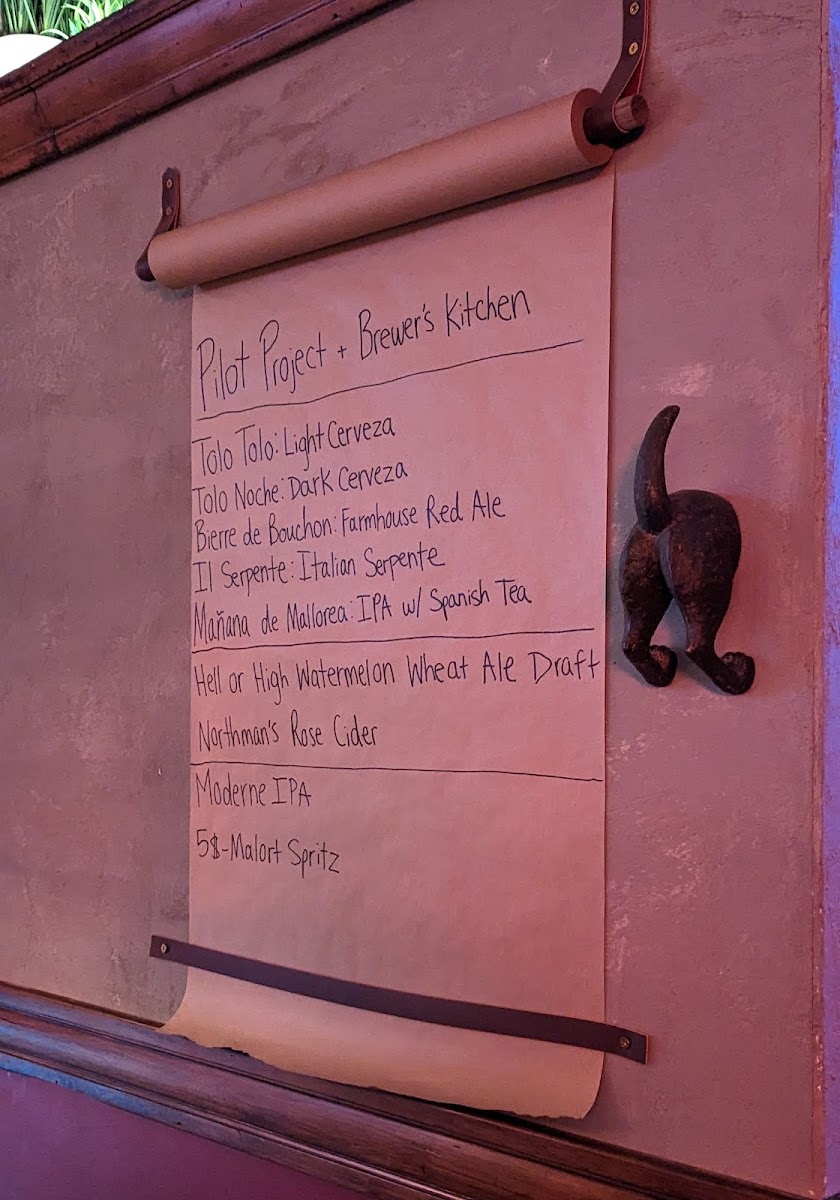 Pilot Project + Brewer's Kitchen
Tolo Tolo: Light Cerveza
Tolo Noche: Dark Cerveza
Bierre de Bouchon: Farmhouse Red Ale
Il Serpente: Italian Serpente
Mañana de Mallorea: IPA w/ Spanish Tea
Hell or High Watermelon Wheat Ale Draft
Northman's Rose Cider
Moderne IPA
5$-Malort Spritz